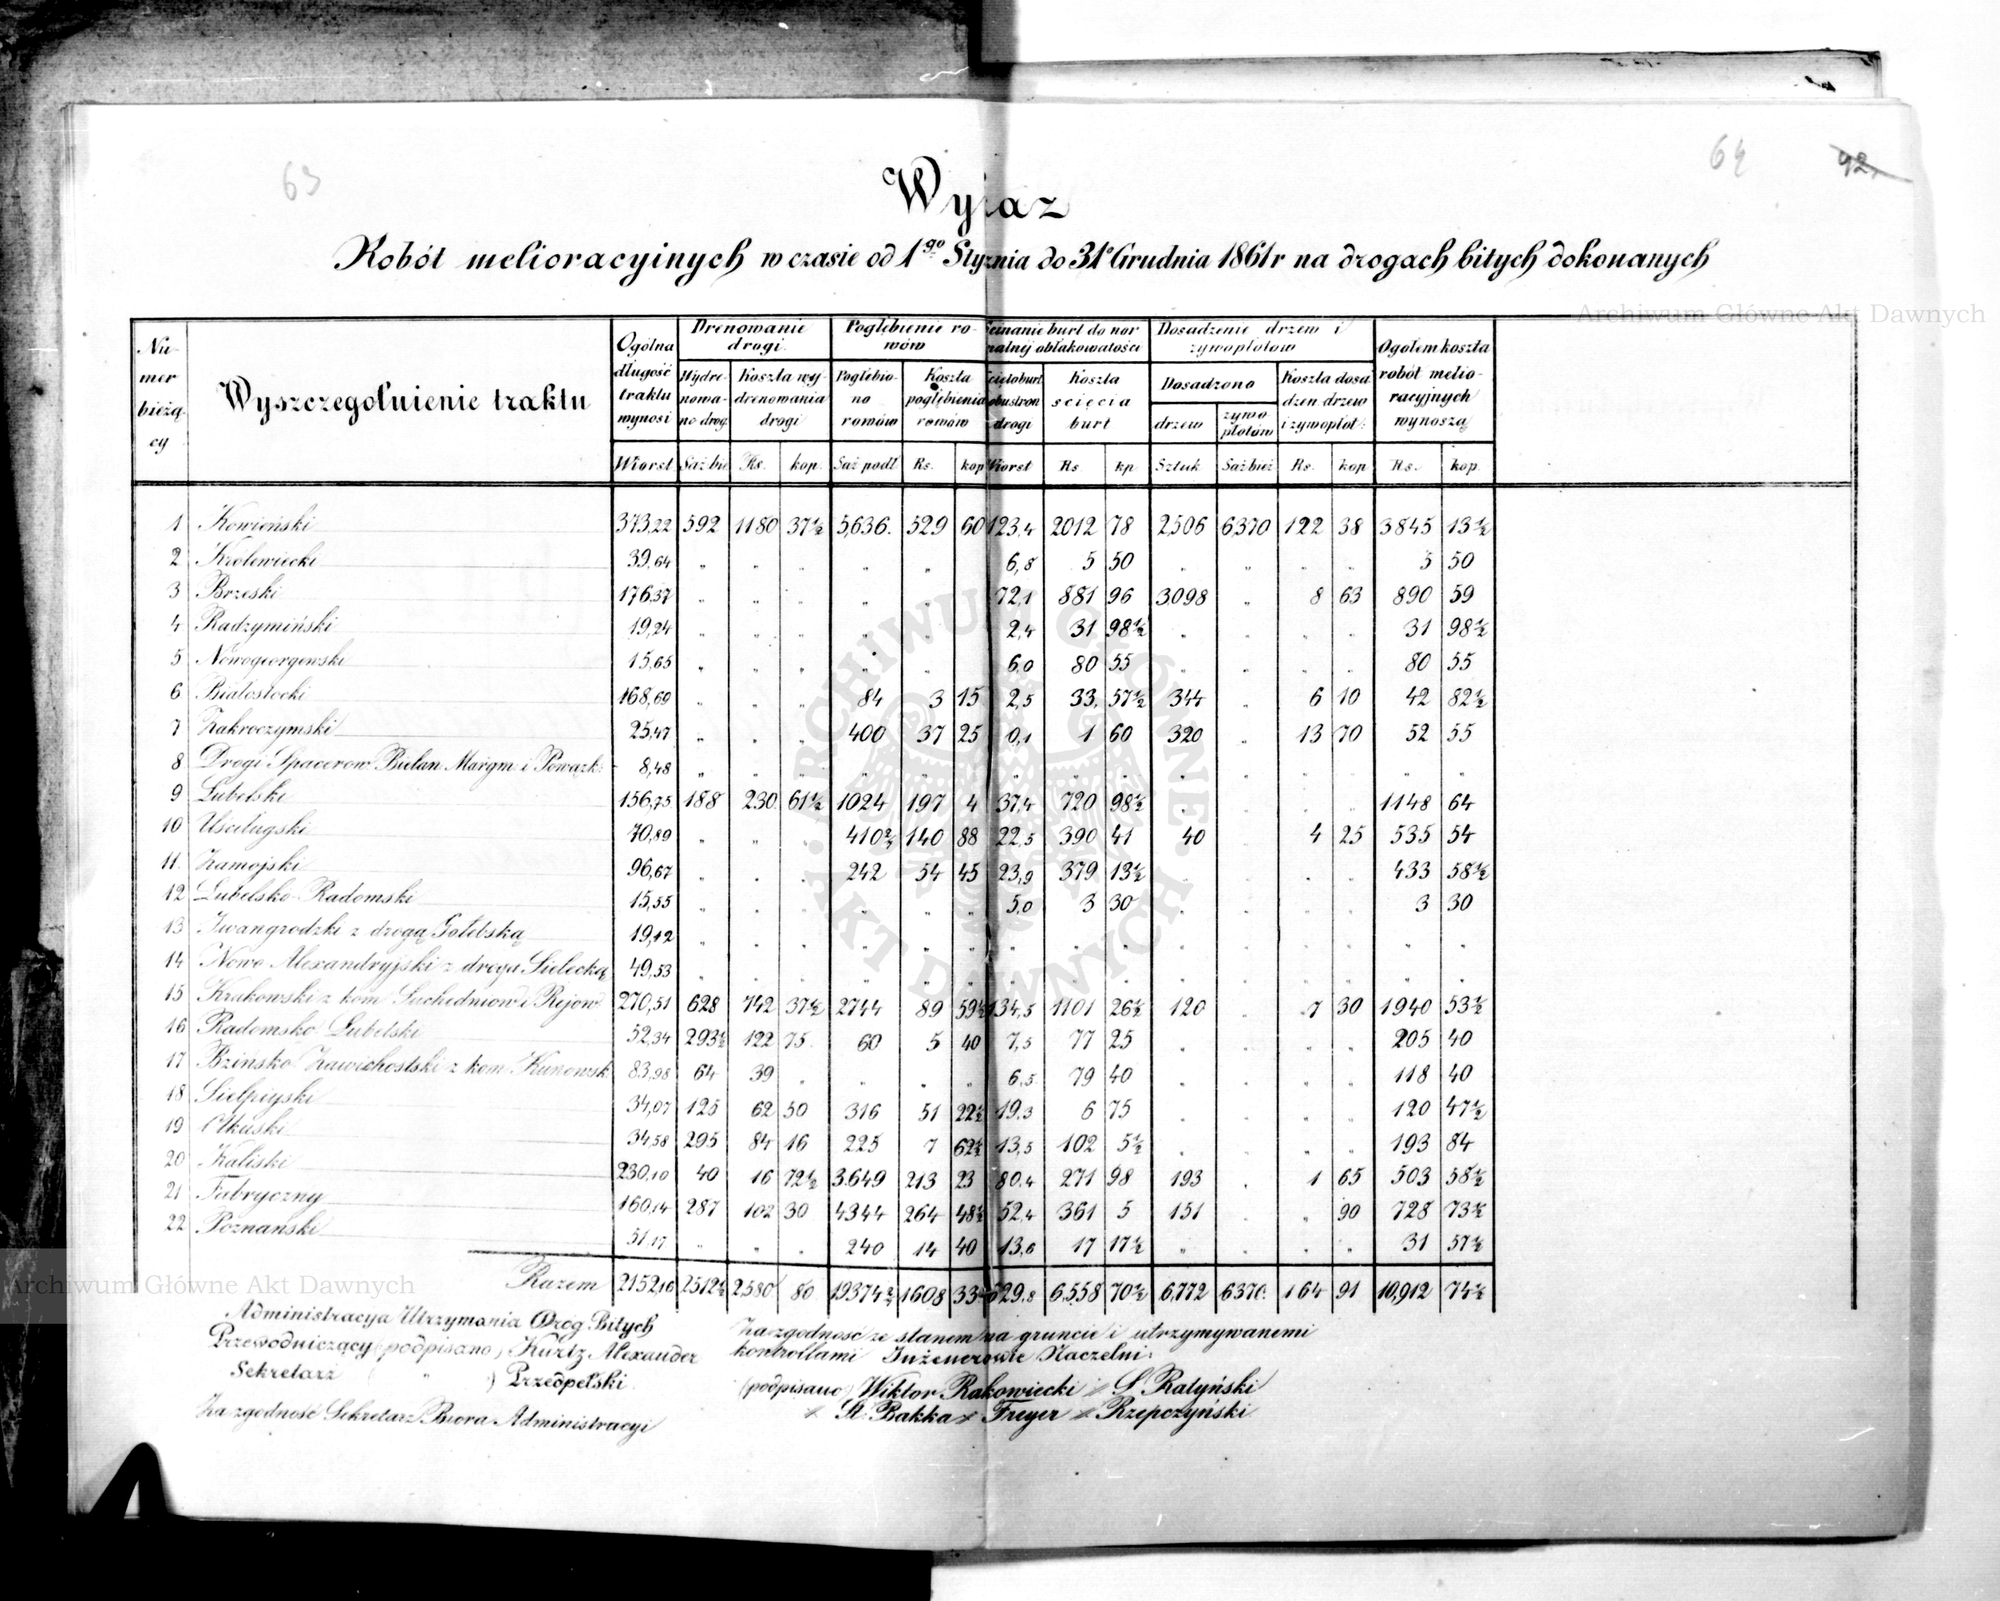 63
64
92
Wyraz
Robót melioracyinych w czasie od 1go Stycznia do 31o Grudnia 1861 r na drogach bitych dokonanych
Archiwum Główne Akt Dawnych
Nu-
mer
bieżą-
cy
Wyszczególnienie traktu
Ogólna
długość
traktu
wynosi
Drenowanie
drogi.
Pogłębienie ro-
wów
Ścinanie burt do nor
malnéj obłakowatości
Dosadzenie drzew i
żywopłotów
Ogołem koszta
robót melio-
racyjnych
wynoszą
Wydre-
nowa-
no drog.
Koszta wy-
drenowania
drogi
Pogłębio-
no
rowów
Koszta
pogłębienia
rowów
Ścięto burt
obustron
drogi
Koszta
ścięcia
burt
Dosadzono
drzew
żywo
płotów
Koszta dosa
dzen drzew
i żywopłot:
Wiorst Saż bie Rs. kop. Saż podł Rs. kop Wiorst Rs kp. Sztuk Saż bież Rs. kop Rs. kop.
1 Kowieński 373,22 592 1180 37½ 5,636. 529 60 123,4 2012 78 2,506 6,370 122 38 3845 13½
2 Królewiecki 39,64 " " " " " 6,8 5 50 " " " " 5 50
3 Brzeski 176,37 " " " " " 72,1 881 96 3098 " 8 63 890 59
4 Radzymiński 19,24 " " " " " 2,4 31 98½ " " " " 31 98½
5 Nowogeorgewski 15,65 " " " " " 6,0 80 55 " " " " 80 55
6 Białostocki 168,69 " " " 84 3 15 2,5 33, 57½ 344 " 6 10 42 82½
7 Zakroczymski 25,47 " " " 400 37 25 0,1 1 60 320 " 13 70 52 55
8 Drogi Spacerow. Bielan Marym i Powązk: 8,48 " " " " " " " " " " " " " " "
9 Lubelski 156,75 188 230 61½ 1024 197 4 37,4 720 98½ " " " " 1148 64
10 Uściługski 70,89 " " " 410¾ 140 88 22,5 390 41 40 4 25 535 54
11. Zamojski 96,67 " " " 242 54 45 23,9 379 13½ " " " " 433 58½
12 Lubelsko-Radomski 15,55 " " " " " " 5,0 3 30 " " " " 3 30
13 Iwangrodzki z drogą Gołebską 19,12 " " " " " " " " " " " " " " "
14 Nowo Alexandryjski z drogą Sielecką 49,53 " " " " " " " " " " " " " " "
15 Krakowski z kom Suchedniow i Rejow. 270,51 628 742 37½ 2744 89 59½ 134,5 1101 26½ 120 " 7 30 1940 53½
16 Radomsko Lubelski 52,34 293½ 122 75 60 5 40 7,5 77 25 " " " " 205 40
17 Bzinsko Zawichostski z kom Kunowsk 83,98 64 39 " " " " 6,5 79 40 " " " " 118 40
18 Sielpiyski 34,07 125 62 50 316 51 22½ 19,3 6 75 " " " " 120 47½
19 Olkuski 34,58 295 84 16 225 7 62½ 13,5 102 5½ " " " " 193 84
20 Kaliski 230,10 40 16 72½ 3.649 213 23 80,4 271 98 193 " 1 65 503 58½
21 Fabryczny 160,14 287 102 30 4344 264 48½ 52,4 361 5 151 " " 90 728 73½
22 Poznański 51,17 " " " 240 14 40 13,6 17 17½ " " " " 31 57½
Razem 2152,16 2512½ 2,580 80 19374¾ 1608 33½ 629,8 6,558 70½ 6,772 6370. 164 91 10,912 74½
Archiwum Główne Akt Dawnych
Administracya Utrzymania Dróg Bitych
Przewodniczący (podpisano) Kurtz Alexander
Sekretarz ( " ) Przedpełski.
Za zgodność Sekretarz Biora Administracyi
Za zgodność ze stanem na gruncie i utrzymywanemi
kontrollami Inżenierowie Naczelni:
(podpisano) Wiktor Rakowiecki " S. Ratyński
" St. Bakka " Freyer " Rzepczyński.
ARCHIWUM GŁÓWNE AKT DAWNYCH